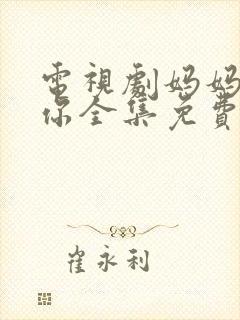 電視劇妈妈
你全集免費
崔永利